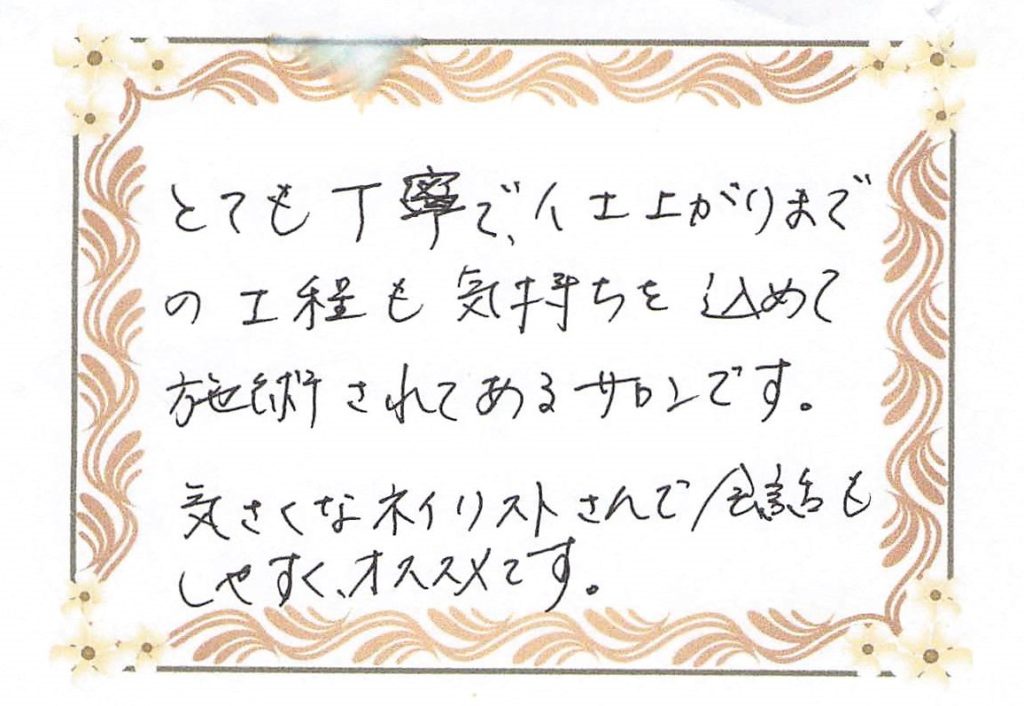 とても丁寧で、仕上がりまで
の工程も気持ちを込めて
施術されてあるサロンです。
気さくなネイリストさんで会話も
しやすく、オススメです。